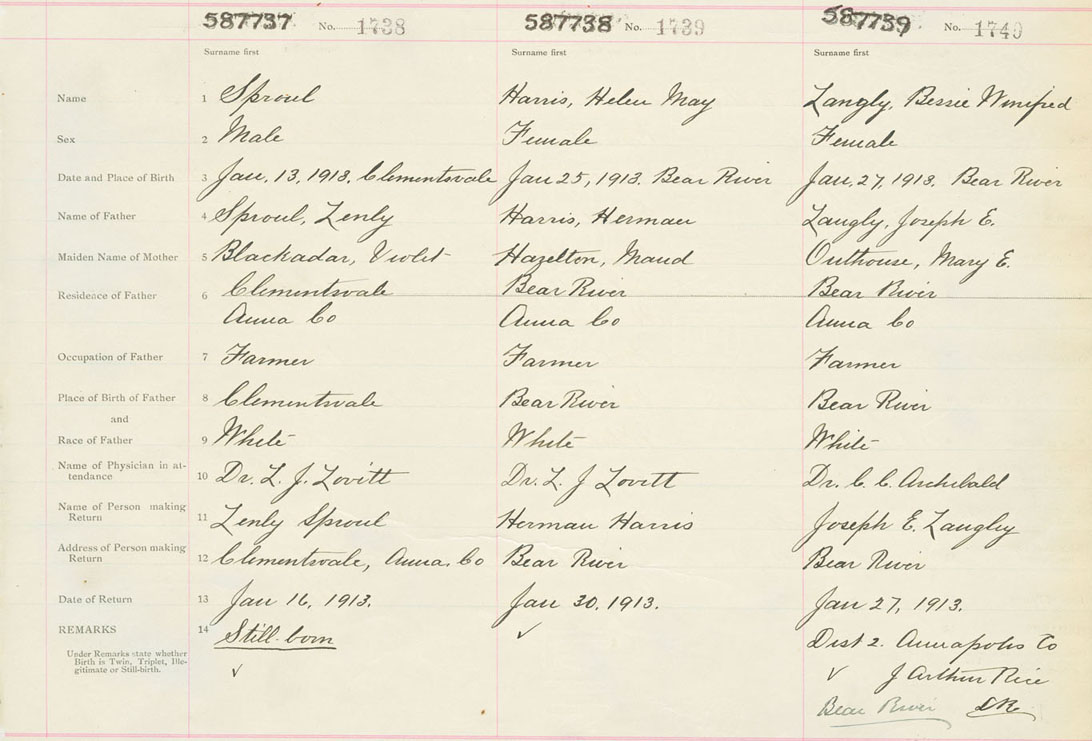 587737 No. 1738 587738 No. 1739 587739 No. 1740
Surname first Surname first Surname first
Name 1 Sproul Harris, Helen May Langly, Bessie Winifred
Sex 2 Male Female Female
Date and Place of Birth 3 Jan. 13, 1913. Clementsvale Jan 25, 1913. Bear River Jan. 27, 1913. Bear River
Name of Father 4 Sproul, Zenly Harris, Herman Langly, Joseph E.
Maiden Name of Mother 5 Blackadar, Violet Hazelton, Maud Outhouse, Mary E.
Residence of Father 6 Clementsvale Bear River Bear River
Anna Co Anna Co Anna Co
Occupation of Father 7 Farmer Farmer Farmer
Place of Birth of Father 8 Clementsvale Bear River Bear River
and
Race of Father 9 White White White
Name of Physician in at-
tendance 10 Dr. L. J. Lovitt Dr. L. J Lovitt Dr. C. C. Archibald
Name of Person making
Return 11 Zenly Sproul Herman Harris Joseph E. Langley
Address of Person making
Return 12 Clementsvale, Anna. Co Bear River Bear River
Date of Return 13 Jan 16, 1913. Jan 30. 1913. Jan 27, 1913.
REMARKS 14 Still-born ✓ Dist 2. Annapolis Co
Under Remarks state whether
Birth is Twin, Triplet, Ille-
gitimate or Still-birth. ✓ ✓ J Arthur Rice
Bear River DR